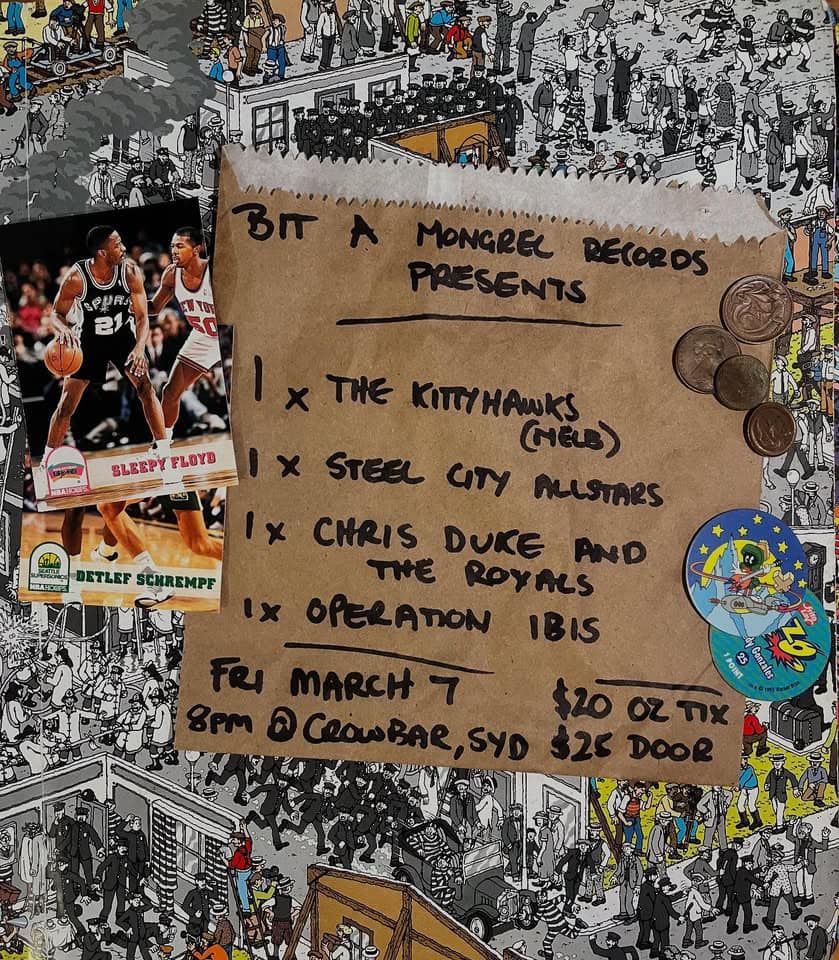 BIT A MONGREL RECORDS
PRESENTS
1 x THE KITTYHAWKS
(MELB)
1 x STEEL CITY ALLSTARS
1 x CHRIS DUKE AND
THE ROYALS
1x OPERATION IBIS
FRI MARCH 7
8PM @ CROWBAR, SYD
$20 OZ TIX
$25 DOOR
SPURS
21
NEW YOR
50
SLEEPY FLOYD
NBA HOOPS
SEATTLE
SUPERSONICS
NBA HOOPS
DETLEF SCHREMPF
dy Gonzales
25
1 POINT